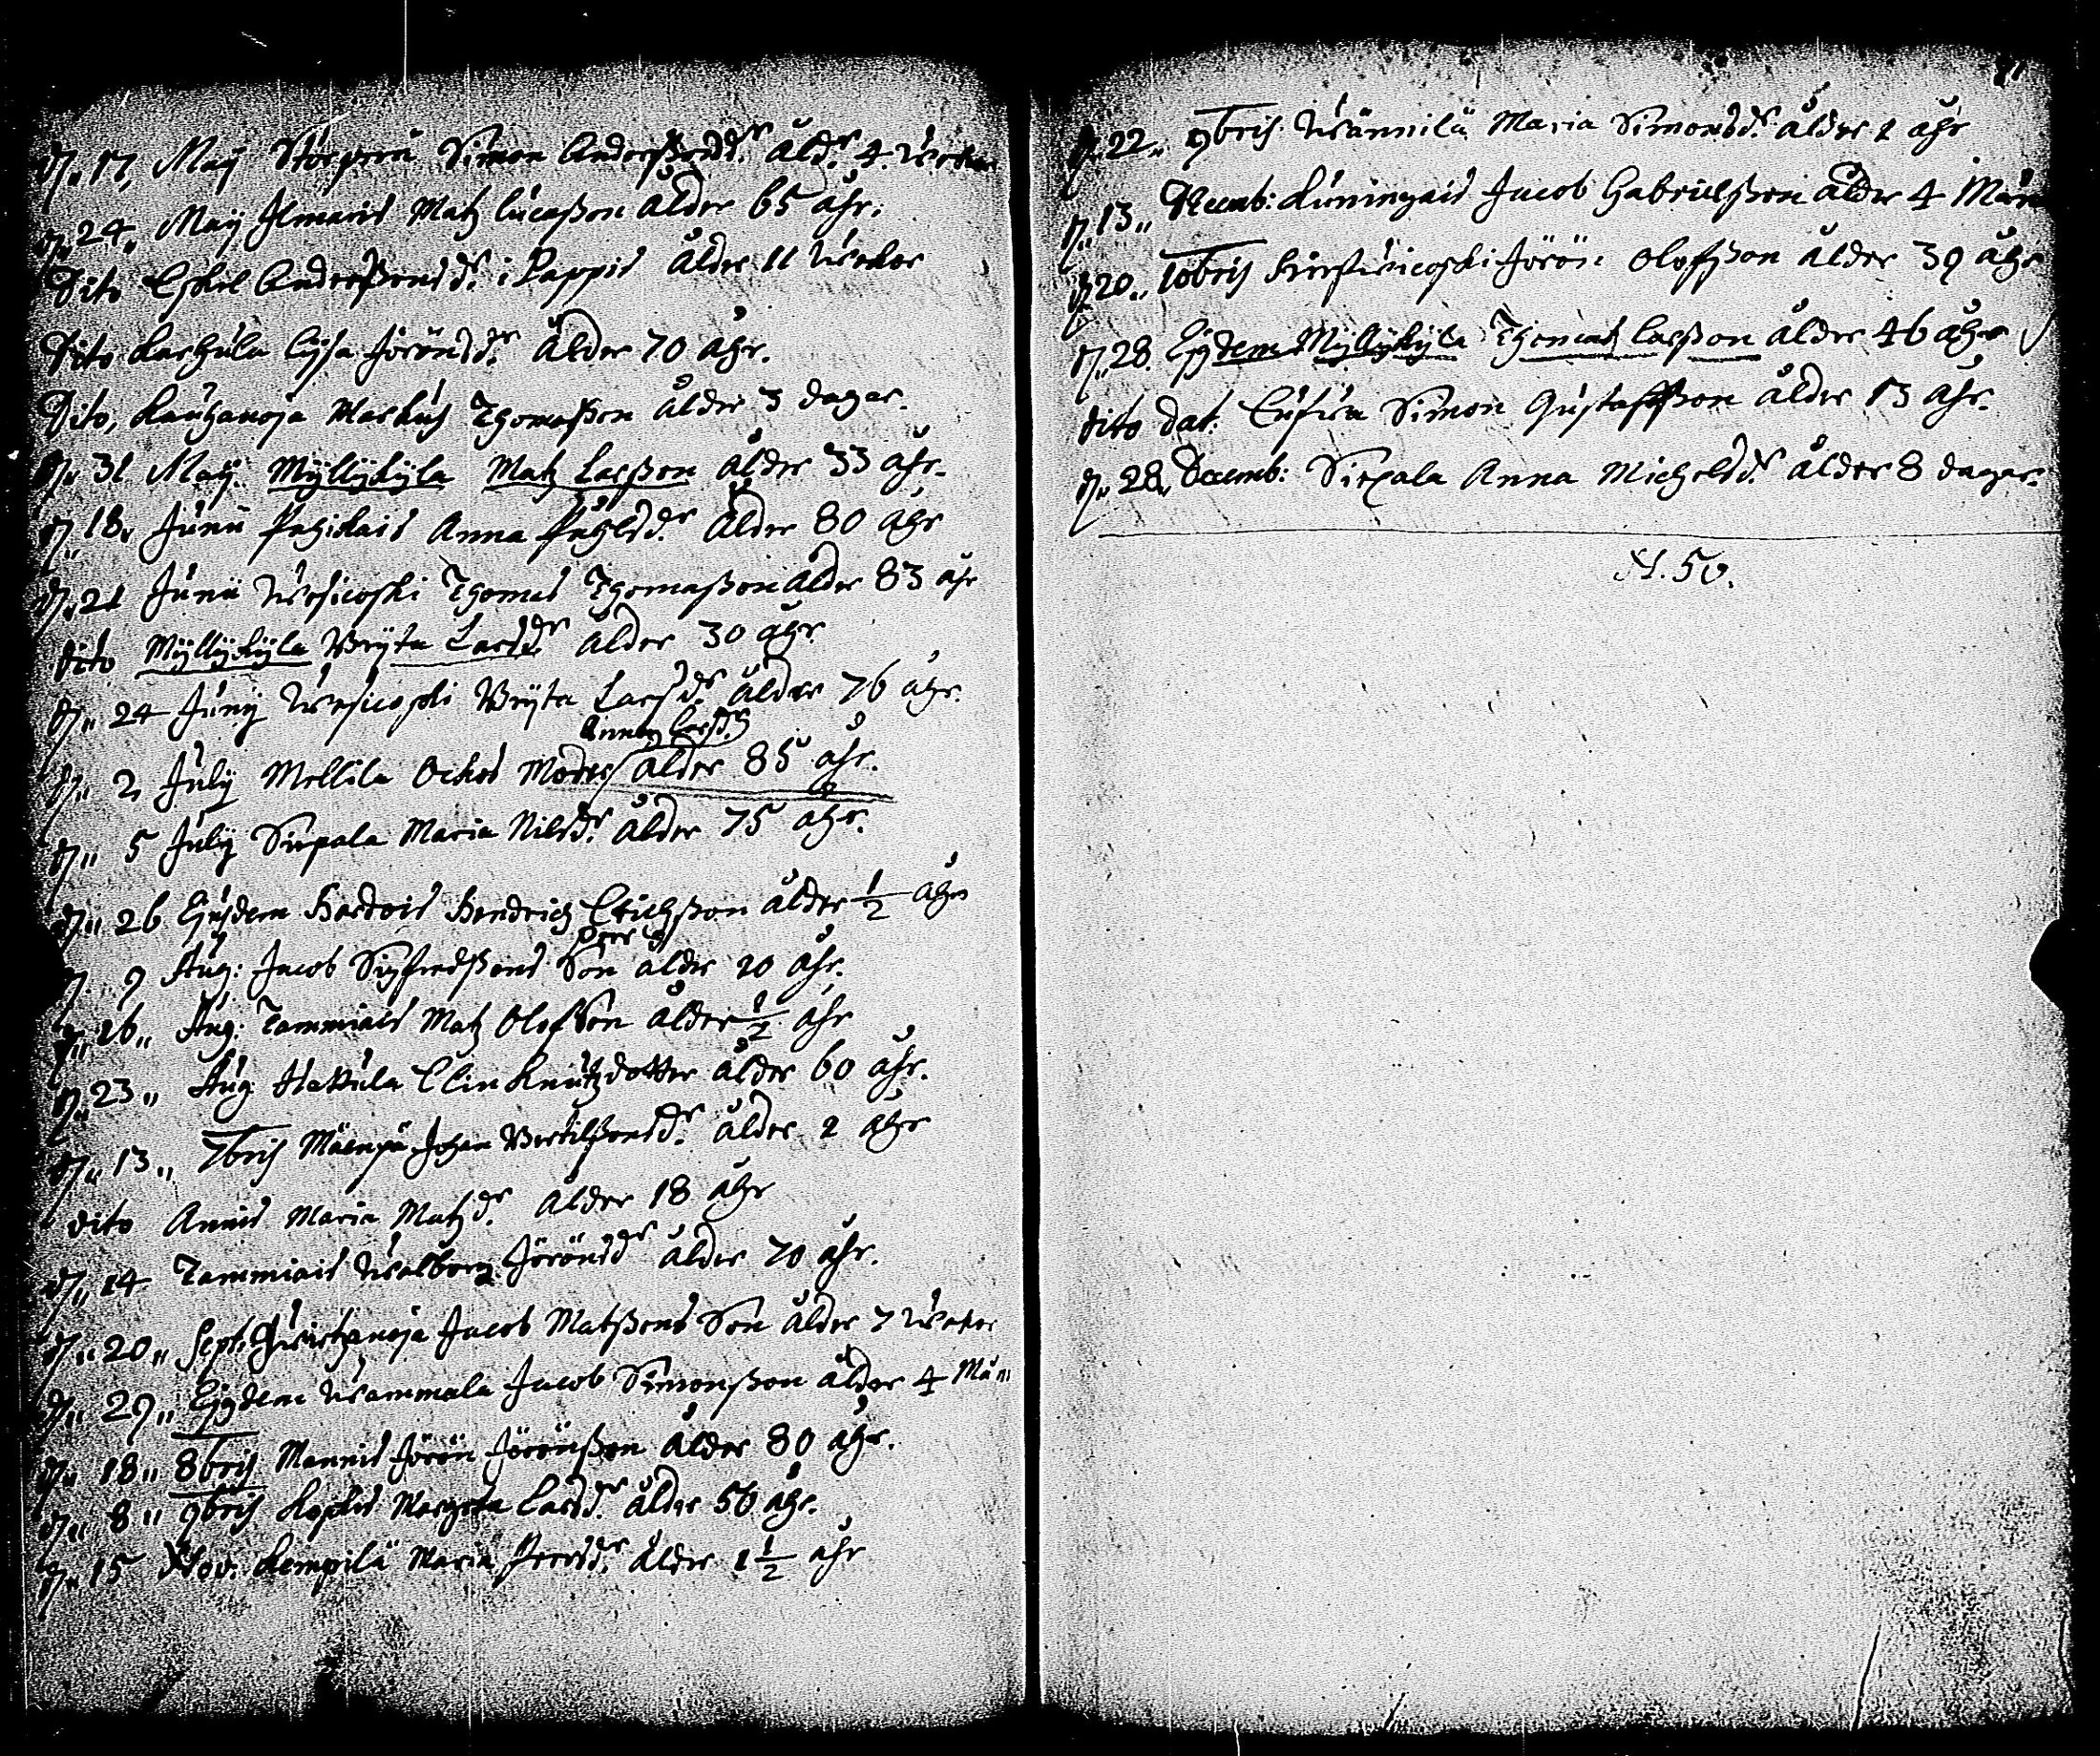 D. 17, Maÿ Storperä Simon Anderßons dr. åldr. 4 wekor
D. 24, Maÿ Ilmaris Matz Lucaßon ålder 65 åhr.
Dito Eskil Anderßons dr. i Pappis ålder 11 wekor
Dito Karhula Lysa Jöröns dr. ålder 70 åhr.
Dito, Kautzanoja Markus Thomaßon ålder 3 dagar.
D. 31 Maÿ. Myllykyla Matz Larßon ålder 33 åhr.
D. 18. Junii Anna Påhls dr. ålder 80 åhr
D. 21 Junii Wesicoski Thomas Thomaßon ålder 83 åhr
dito Myllykyla Bryta Lars dr. ålder 30 åhr
D. 24 Junij Wesicoski Bryta Lars dr. ålder 76 åhr.
D. 2 July Mellila Ockos Moder ålder 85 åhr.
D. 5 July Sirpala Maria Nils dr. ålder 75 åhr.
D. 26 Ejusdem Hendrich Erichßon ålder 1/2 åhr
D. 9 Aug: Jacob Sigfredßons Son ålder 20 åhr.
D. 16. Aug: Tammiais Matz Olofson ålder 1/2 åhr
D. 23. Aug Hakula Elin Knutzdotter ålder 60 åhr.
D. 13. 7bris Mäenpä Johan Bertilßons dr. ålder 2 åhr
dito Annis Maria Matz dr. ålder 18 åhr
D. 14 Tammiais Walborg Jöröns dr ålder 70 åhr.
D. 20. Sept. Jacob Matßons Son ålder 7 wekor
D. 29. Ejsdem Wammala Jacob Simonßon ålder 4 Mån
D. 18. 8bris Mannis Jörön Jörönßon ålder 80 åhr.
D. 8. 9bris Margeta Lars dr. ålder 56 åhr.
D. 15 Nov. Kempilä Maria Peers dr. ålder 1 1/2 åhr
D. 22. 9bris. Wännilä Maria Simons dr. ålder 2 åhr
D. 13. Decemb: Kuningais Jacob Gabrielßon ålder 4 Mån
D. 20. 10bris Jörön Olofßon ålder 39 åhr
D. 28. Ejsdem Myllykyla Thomas Larßon ålder 46 åhr
dito dat. Simon Gustafßon ålder 13 åhr.
D. 28. Decemb: Sirpala Anna Michels dr. ålder 8 dagar.
N. 50.